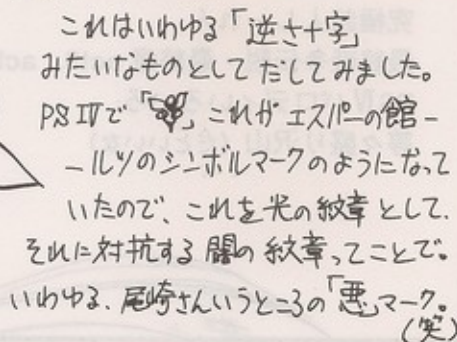 これはいわゆる「逆さ十字」
みたいなものとしてだしてみました。
PSⅣで「」これがエスパーの館-
-ルツのシンボルマークのようになって
いたので、これを光の紋章として、
それに対抗する闇の紋章ってことで。
いわゆる、尾崎さんいうところの「悪」マーク。
(笑)